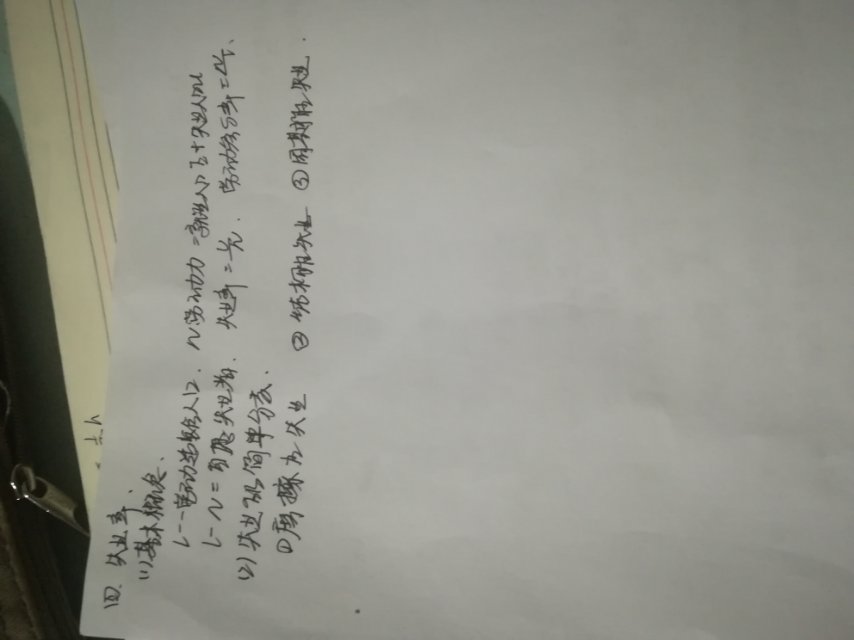 四、失业率、
(1)基本概念、
L--劳动年龄人口、N劳动力=就业人口E+失业人口U
L-N=自愿失业者、失业率=U/N、劳动参与率=N/L、
(2)失业的简单分类、
①摩擦性失业 ②结构性失业 ③周期性失业、